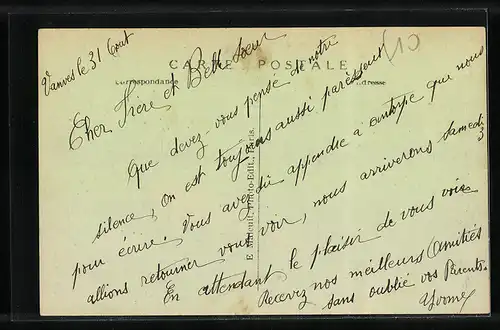 Vanves le 31 Aout
10
CARTE POSTALE
Correspondance
Adresse
Cher Frere et Bell Soeur
Que devez vous pensé de notre
silence, on est toujours aussi paressant
pour écrire. Vous avez dû appendre a que nous
allions retourner vous voir, nous arriverons samedi
3
En attendant le plaisir de vous voir
Recevez nos meilleurs amitiés
sans oublié vos Parents
Yvonne
E. Malcuit, Photo-Edit., Paris.